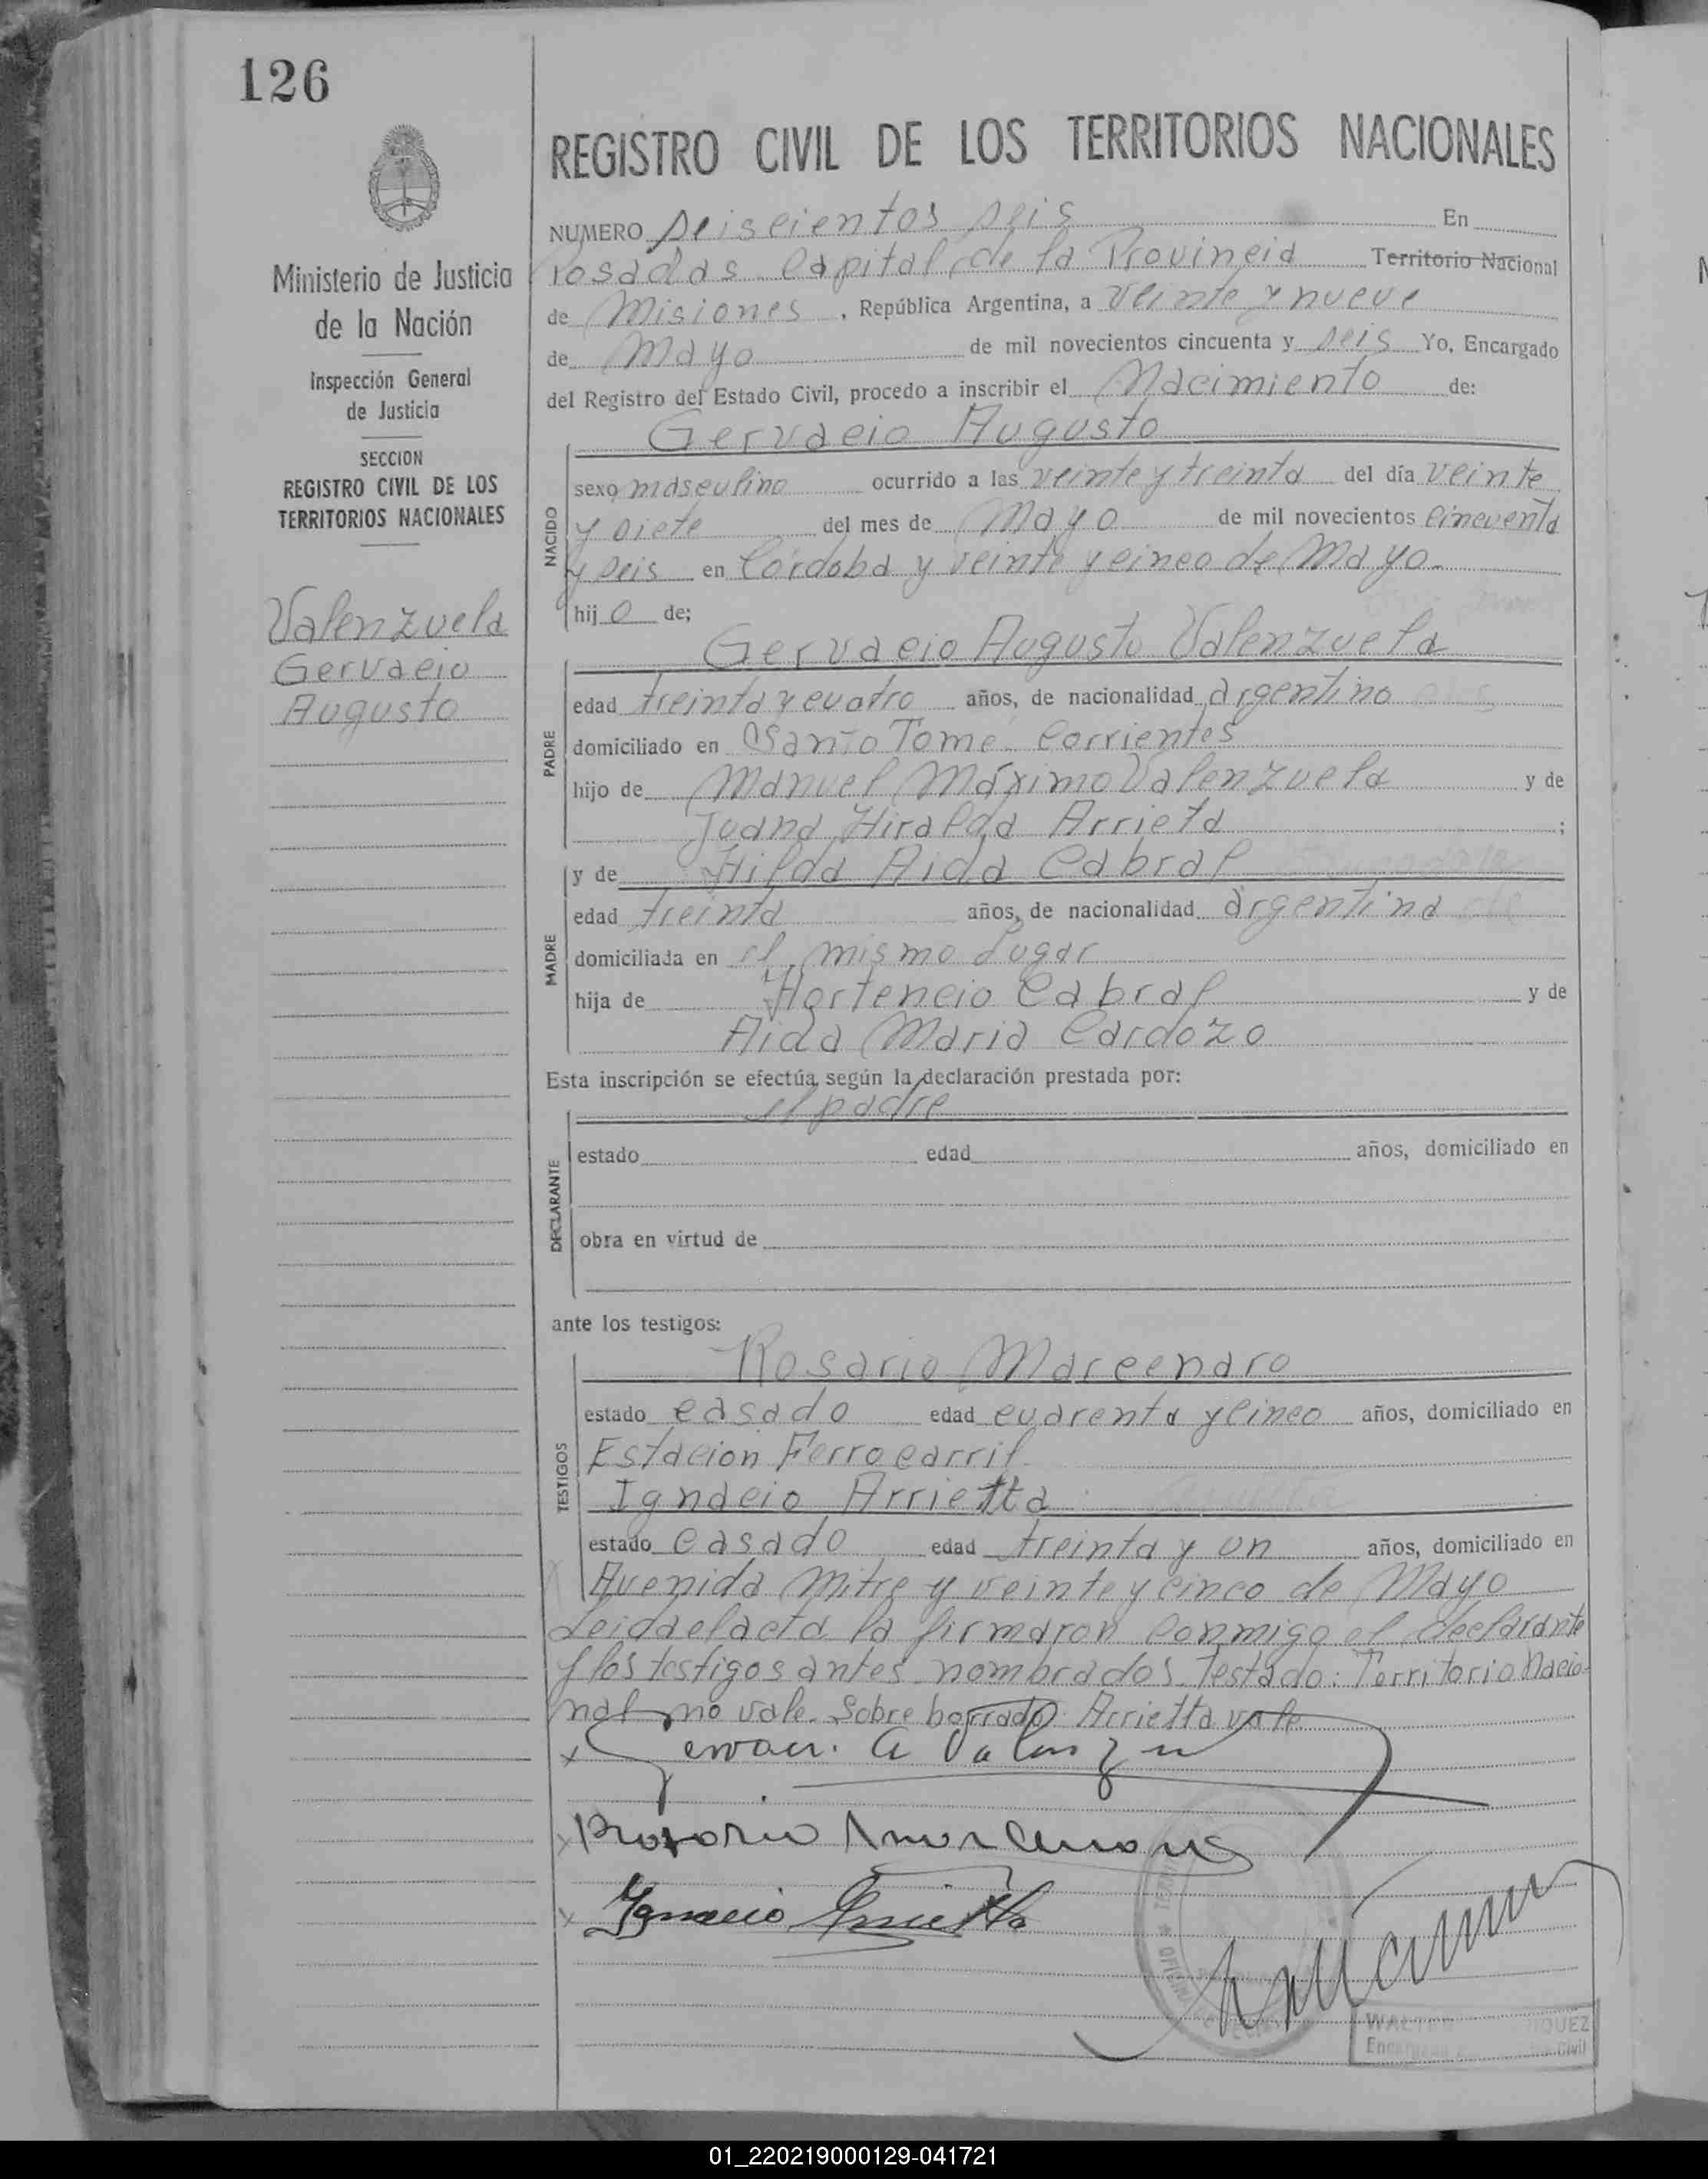 126
REGISTRO CIVIL DE LOS TERRITORIOS NACIONALES
Ministerio de Justicia
de la Nación
Inspección General
de Justicia
SECCION
REGISTRO CIVIL DE LOS
TERRITORIOS NACIONALES
Valenzuela
Gervacio
Augusto
NUMERO seiscientos seis En
Posadas Capital de la Provincia Territorio Nacional
de Misiones, República Argentina, a veinte y nueve
de Mayo de mil novecientos cincuenta y seis Yo, Encargado
del Registro del Estado Civil, procedo a inscribir el Nacimiento de:
Gervacio Augusto
NACIDO
sexo masculino ocurrido a las veinte y treinta del día veinte
y siete del mes de Mayo de mil novecientos cincuenta
y seis en Córdoba y veinte y cinco de Mayo.
hijo de;
PADRE
Gervacio Augusto Valenzuela
edad treinta y cuatro años, de nacionalidad argentino
domiciliado en Santo Tomé. Corrientes
hijo de Manuel Máximo Valenzuela y de
Juana Hiralda Arrieta ;
MADRE
y de Hilda Aida Cabral
edad treinta años, de nacionalidad argentina
domiciliada en el mismo lugar
hija de Hortencio Cabral y de
Aida Maria Cardozo
Esta inscripción se efectúa según la declaración prestada por:
DECLARANTE
el padre
estado edad años, domiciliado en
obra en virtud de
ante los testigos:
TESTIGOS
Rosario Marcenaro
estado casado edad cuarenta y cinco años, domiciliado en
Estacion Ferrocarril
Ignacio Arrietta
estado casado edad treinta y un años, domiciliado en
Avenida Mitre y veinte y cinco de Mayo
Leida el acta la firmaron conmigo el declarante
y los testigos antes nombrados. Testado: Territorio Nacio-
nal no vale. Sobre borrado: Arrietta vale
Rosario Marcenaro
Ignacio Arrietta
WALTER
Encargado Civil
01_220219000129-041721